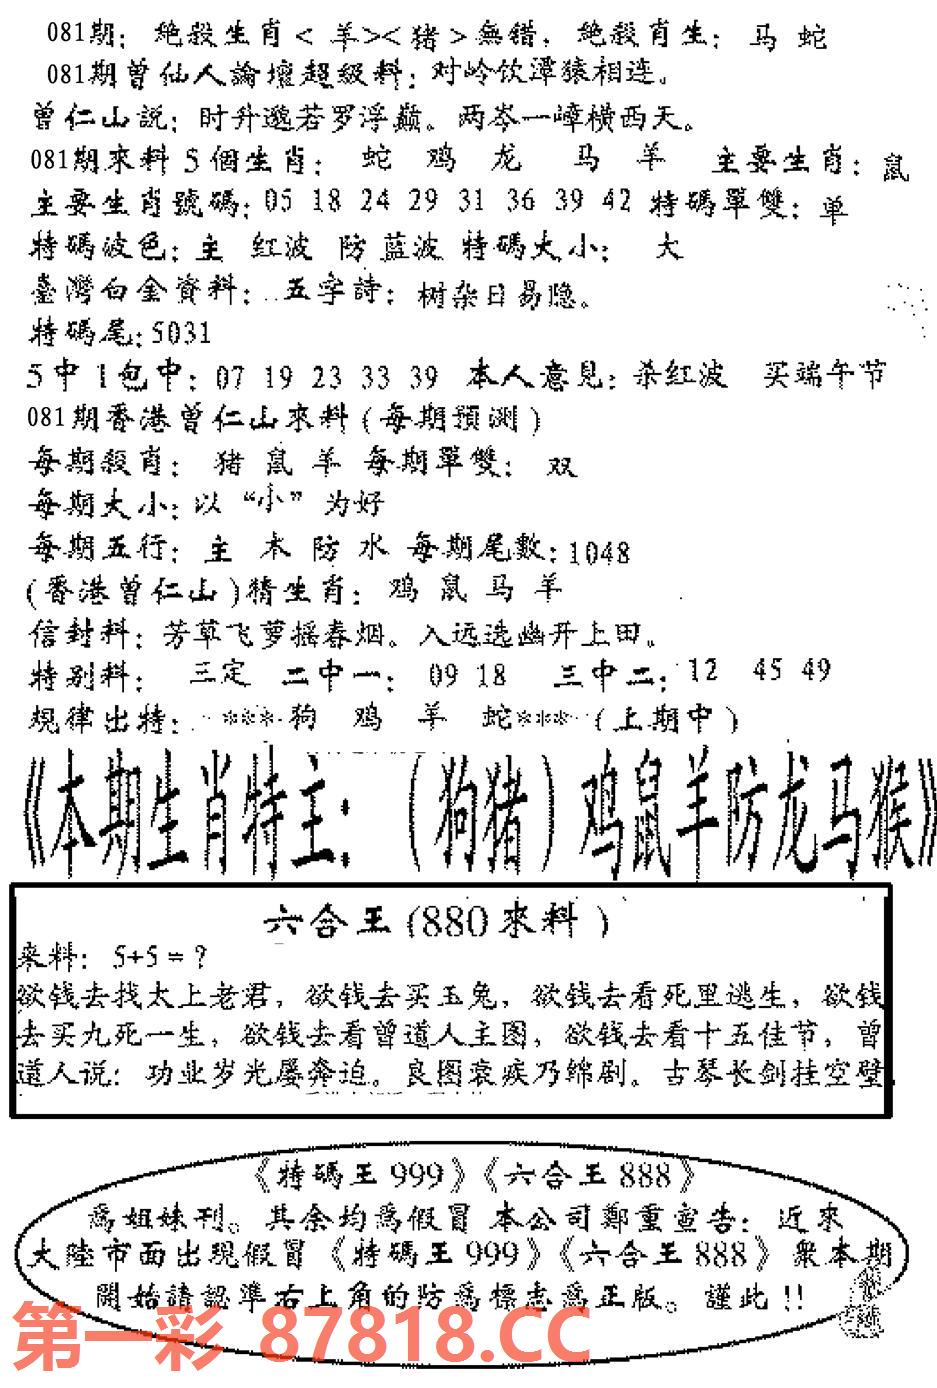 081期：絶殺生肖＜羊＞＜猪＞無錯，絶殺肖生：马 蛇
081期曾仙人論壇超級料：对岭饮潭猿相连。
曾仁山説：时升邈若罗浮巅。两岑一嶂横西天。
081期來料5個生肖： 蛇 鸡 龙 马 羊 主要生肖：鼠
主要生肖號碼：05 18 24 29 31 36 39 42 特碼單雙：单
特碼波色：主 红波 防 蓝波 特碼大小： 大
臺灣白金資料： 五字詩：树杂日易隐。
特碼尾：5031
5中1包中：07 19 23 33 39 本人意見：杀红波 买端午节
081期香港曾仁山來料(每期預測)
每期殺肖： 猪 鼠 羊 每期單雙： 双
每期大小：以“小”为好
每期五行：主 木 防 水 每期尾數：1048
(香港曾仁山)猜生肖： 鸡 鼠 马 羊
信封料：芳草飞萝摇春烟。入远选幽开上田。
特别料： 三定 二中一： 09 18 三中二：12 45 49
規律出特：***狗 鸡 羊 蛇***(上期中)
《本期生肖特主：（狗猪）鸡鼠羊防龙马猴》
六合王(880來料)
來料： 5+5=?
欲钱去找太上老君，欲钱去买玉兔，欲钱去看死里逃生，欲钱
去买九死一生，欲钱去看曾道人主图，欲钱去看十五佳节，曾
道人说：功业岁光屡奔迫。良图衰疾乃绵剧。古琴长剑挂空壁
《特碼王999》《六合王888》
爲姐妹刊。其余均爲假冒 本公司鄭重宣告：近來
大陸市面出現假冒《特碼王999》《六合王888》衆本期
開始請認準右上角的防爲標志爲正版。謹此!!
第一彩 87818.CC